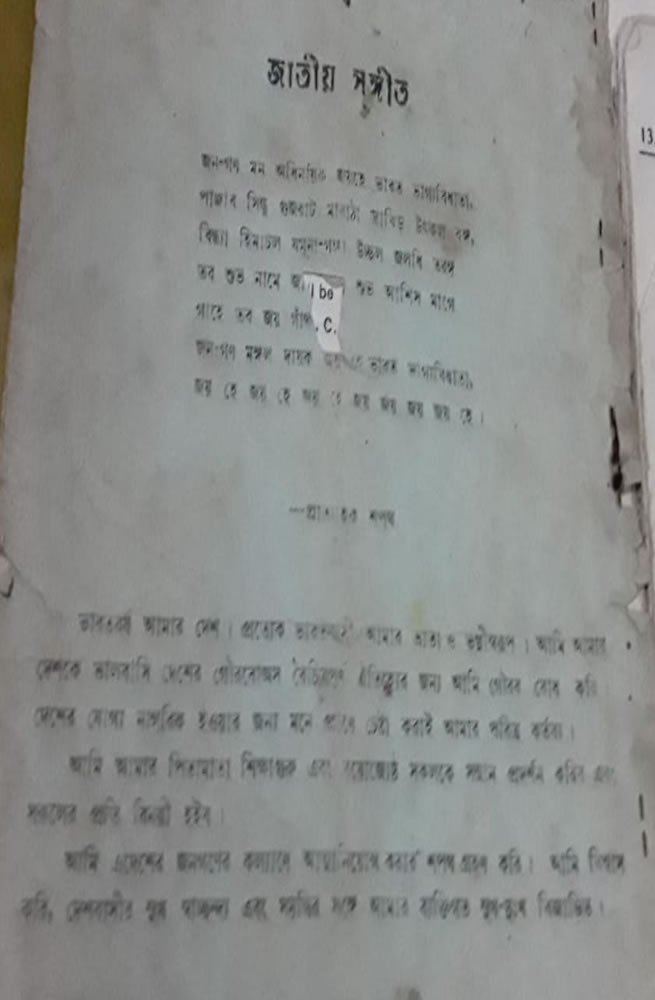 জাতীয় সঙ্গীত
13
জন-গণ মন অধিনায়ক জয়হে ভারত ভাগ্যবিধাতা,
পাঞ্জাব সিন্ধু গুজরাট মারাঠা দ্রাবিড় উৎকল বঙ্গ,
বিন্ধ্য হিমাচল যমুনা-গঙ্গা উচ্ছল জলধি তরঙ্গ
তব শুভ নামে শুভ আশিস মাগে
I be
গাহে তব জয়
. C.
জন-গণ মঙ্গল দায়ক ভারত ভাগ্যবিধাতা,
জয় হে জয় হে জয় হে জয় জয় জয় জয় হে।
শপথ
ভারতবর্ষ আমার দেশ। প্রত্যেক ভারতবাসী আমার ভ্রাতা ও ভগ্নীস্বরূপ। আমি আমার
দেশকে ভালবাসি দেশের গৌরবোজ্জল বৈচিত্র্যপূর্ণ ঐতিহ্যের জন্য আমি গৌরব বোধ করি।
দেশের যোগ্য নাগরিক হওয়ার জন্য মনে প্রাণে চেষ্টা করাই আমার পবিত্র কর্তব্য।
আমি আমার পিতামাতা শিক্ষক এবং বয়োজ্যেষ্ঠ সকলকে সম্মান প্রদর্শন করিব এবং
সকলের প্রতি বিনয়ী হইব।
আমি এদেশের জনগণের কল্যাণে আত্মনিয়োগ করার শপথ গ্রহণ করি। আমি বিশ্বাস
করি, দেশবাসীর সুখ স্বাচ্ছন্দ্য এবং সমৃদ্ধির সঙ্গে আমার ব্যক্তিগত সুখ-দুঃখ বিজড়িত।